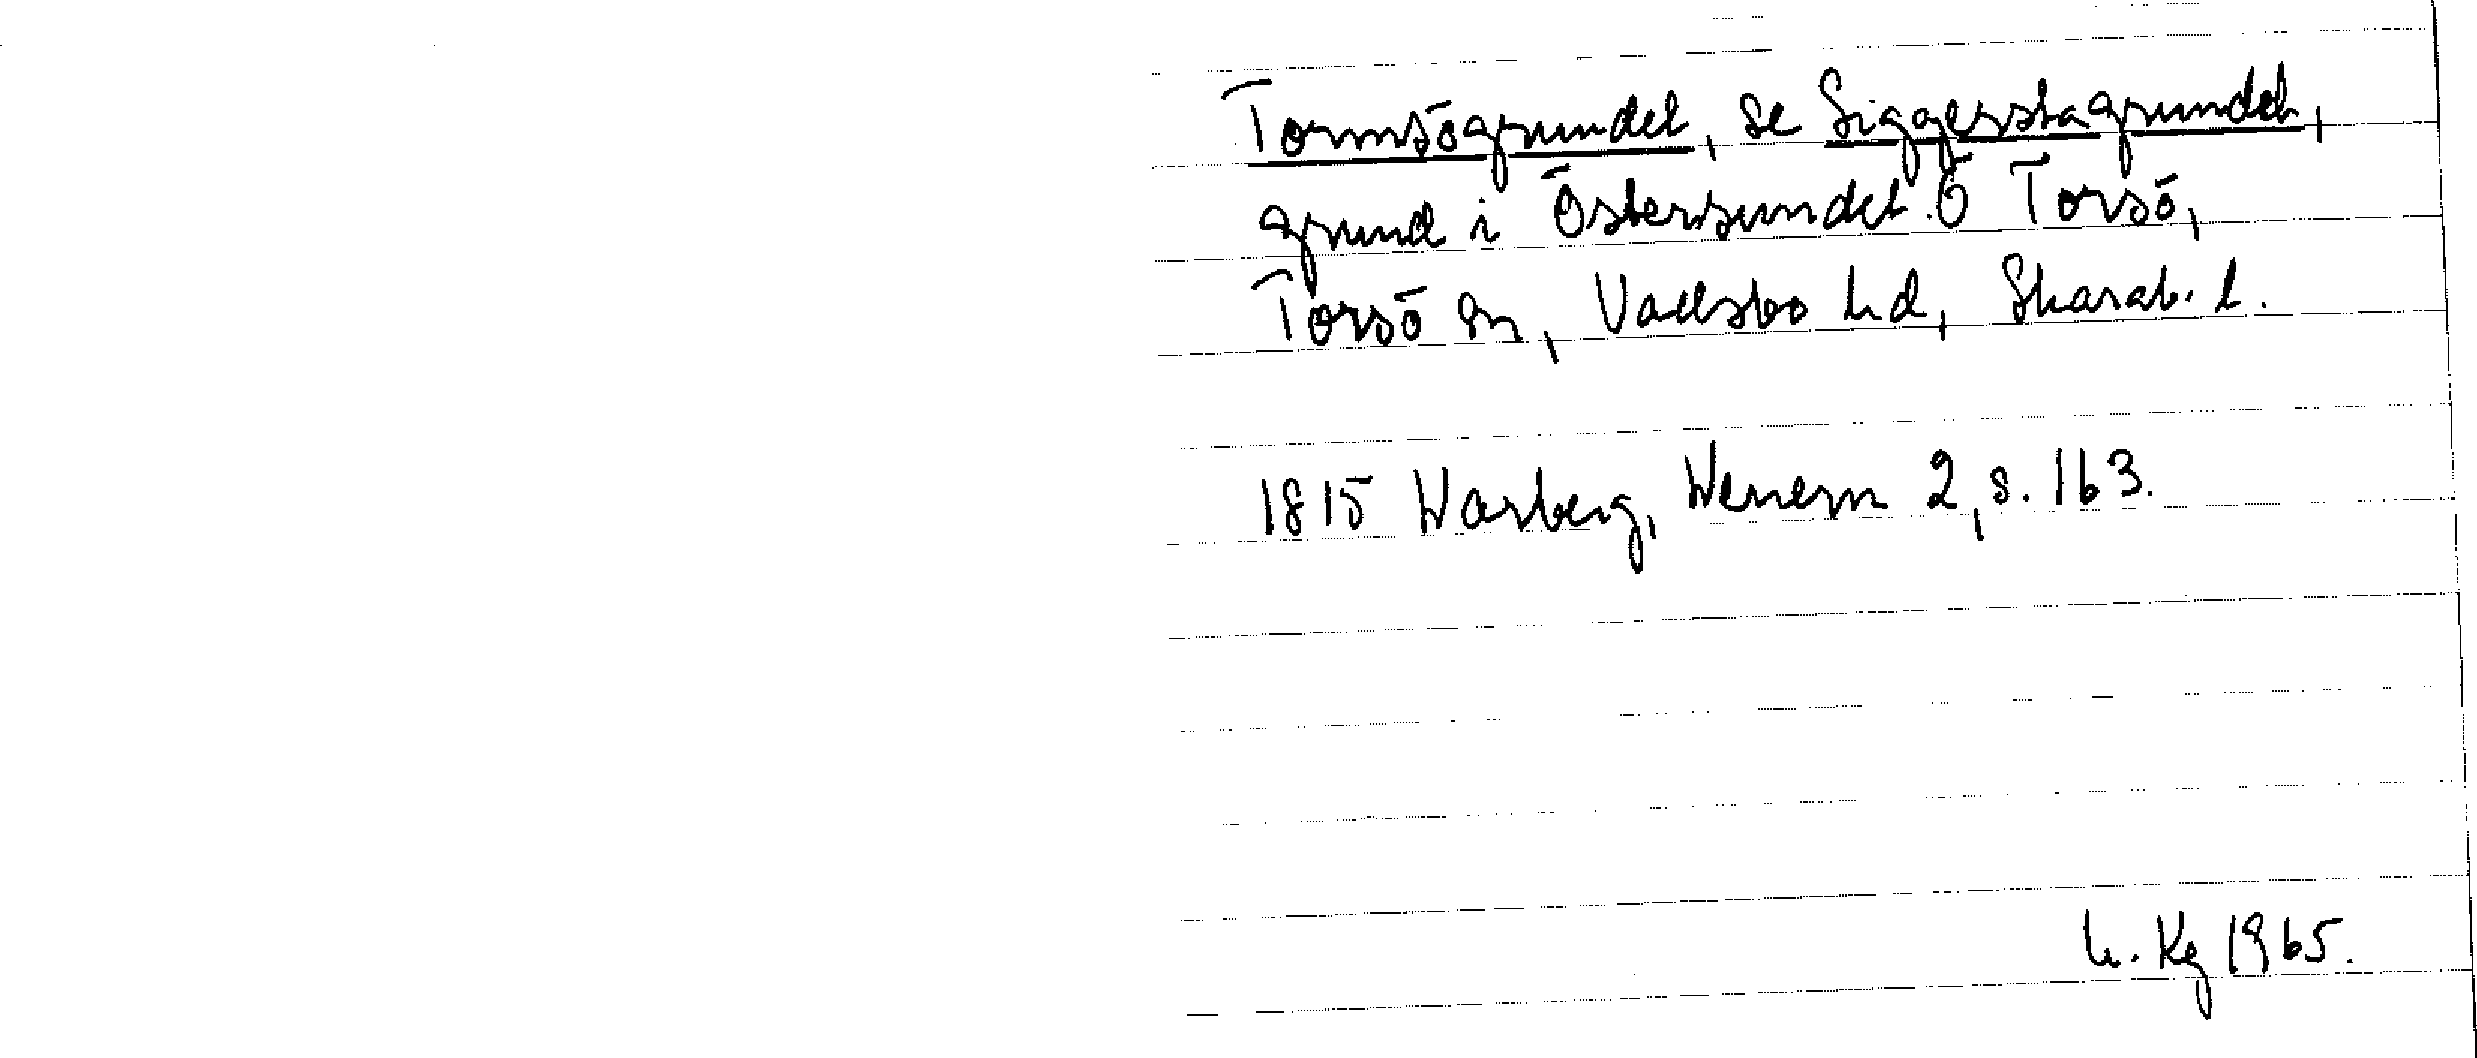 Tormsögrundet, se Siggerstagrundet,
grund i Östersundet Ö Torsö,
Torsö sn, Vadsbo hd, Skarab. l.
1815 Warberg, Wenern 2, s. 163.
Kg 1965.